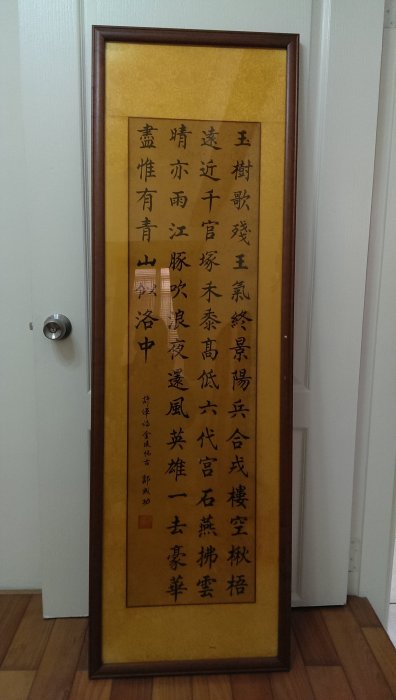 玉樹歌殘王氣終景陽兵合戍樓空楸梧
遠近千官塚禾黍髙低六代宮石燕拂雲
晴亦雨江豚吹浪夜還風英雄一去豪華
盡惟有青山似洛中
許渾詩金陵懷古